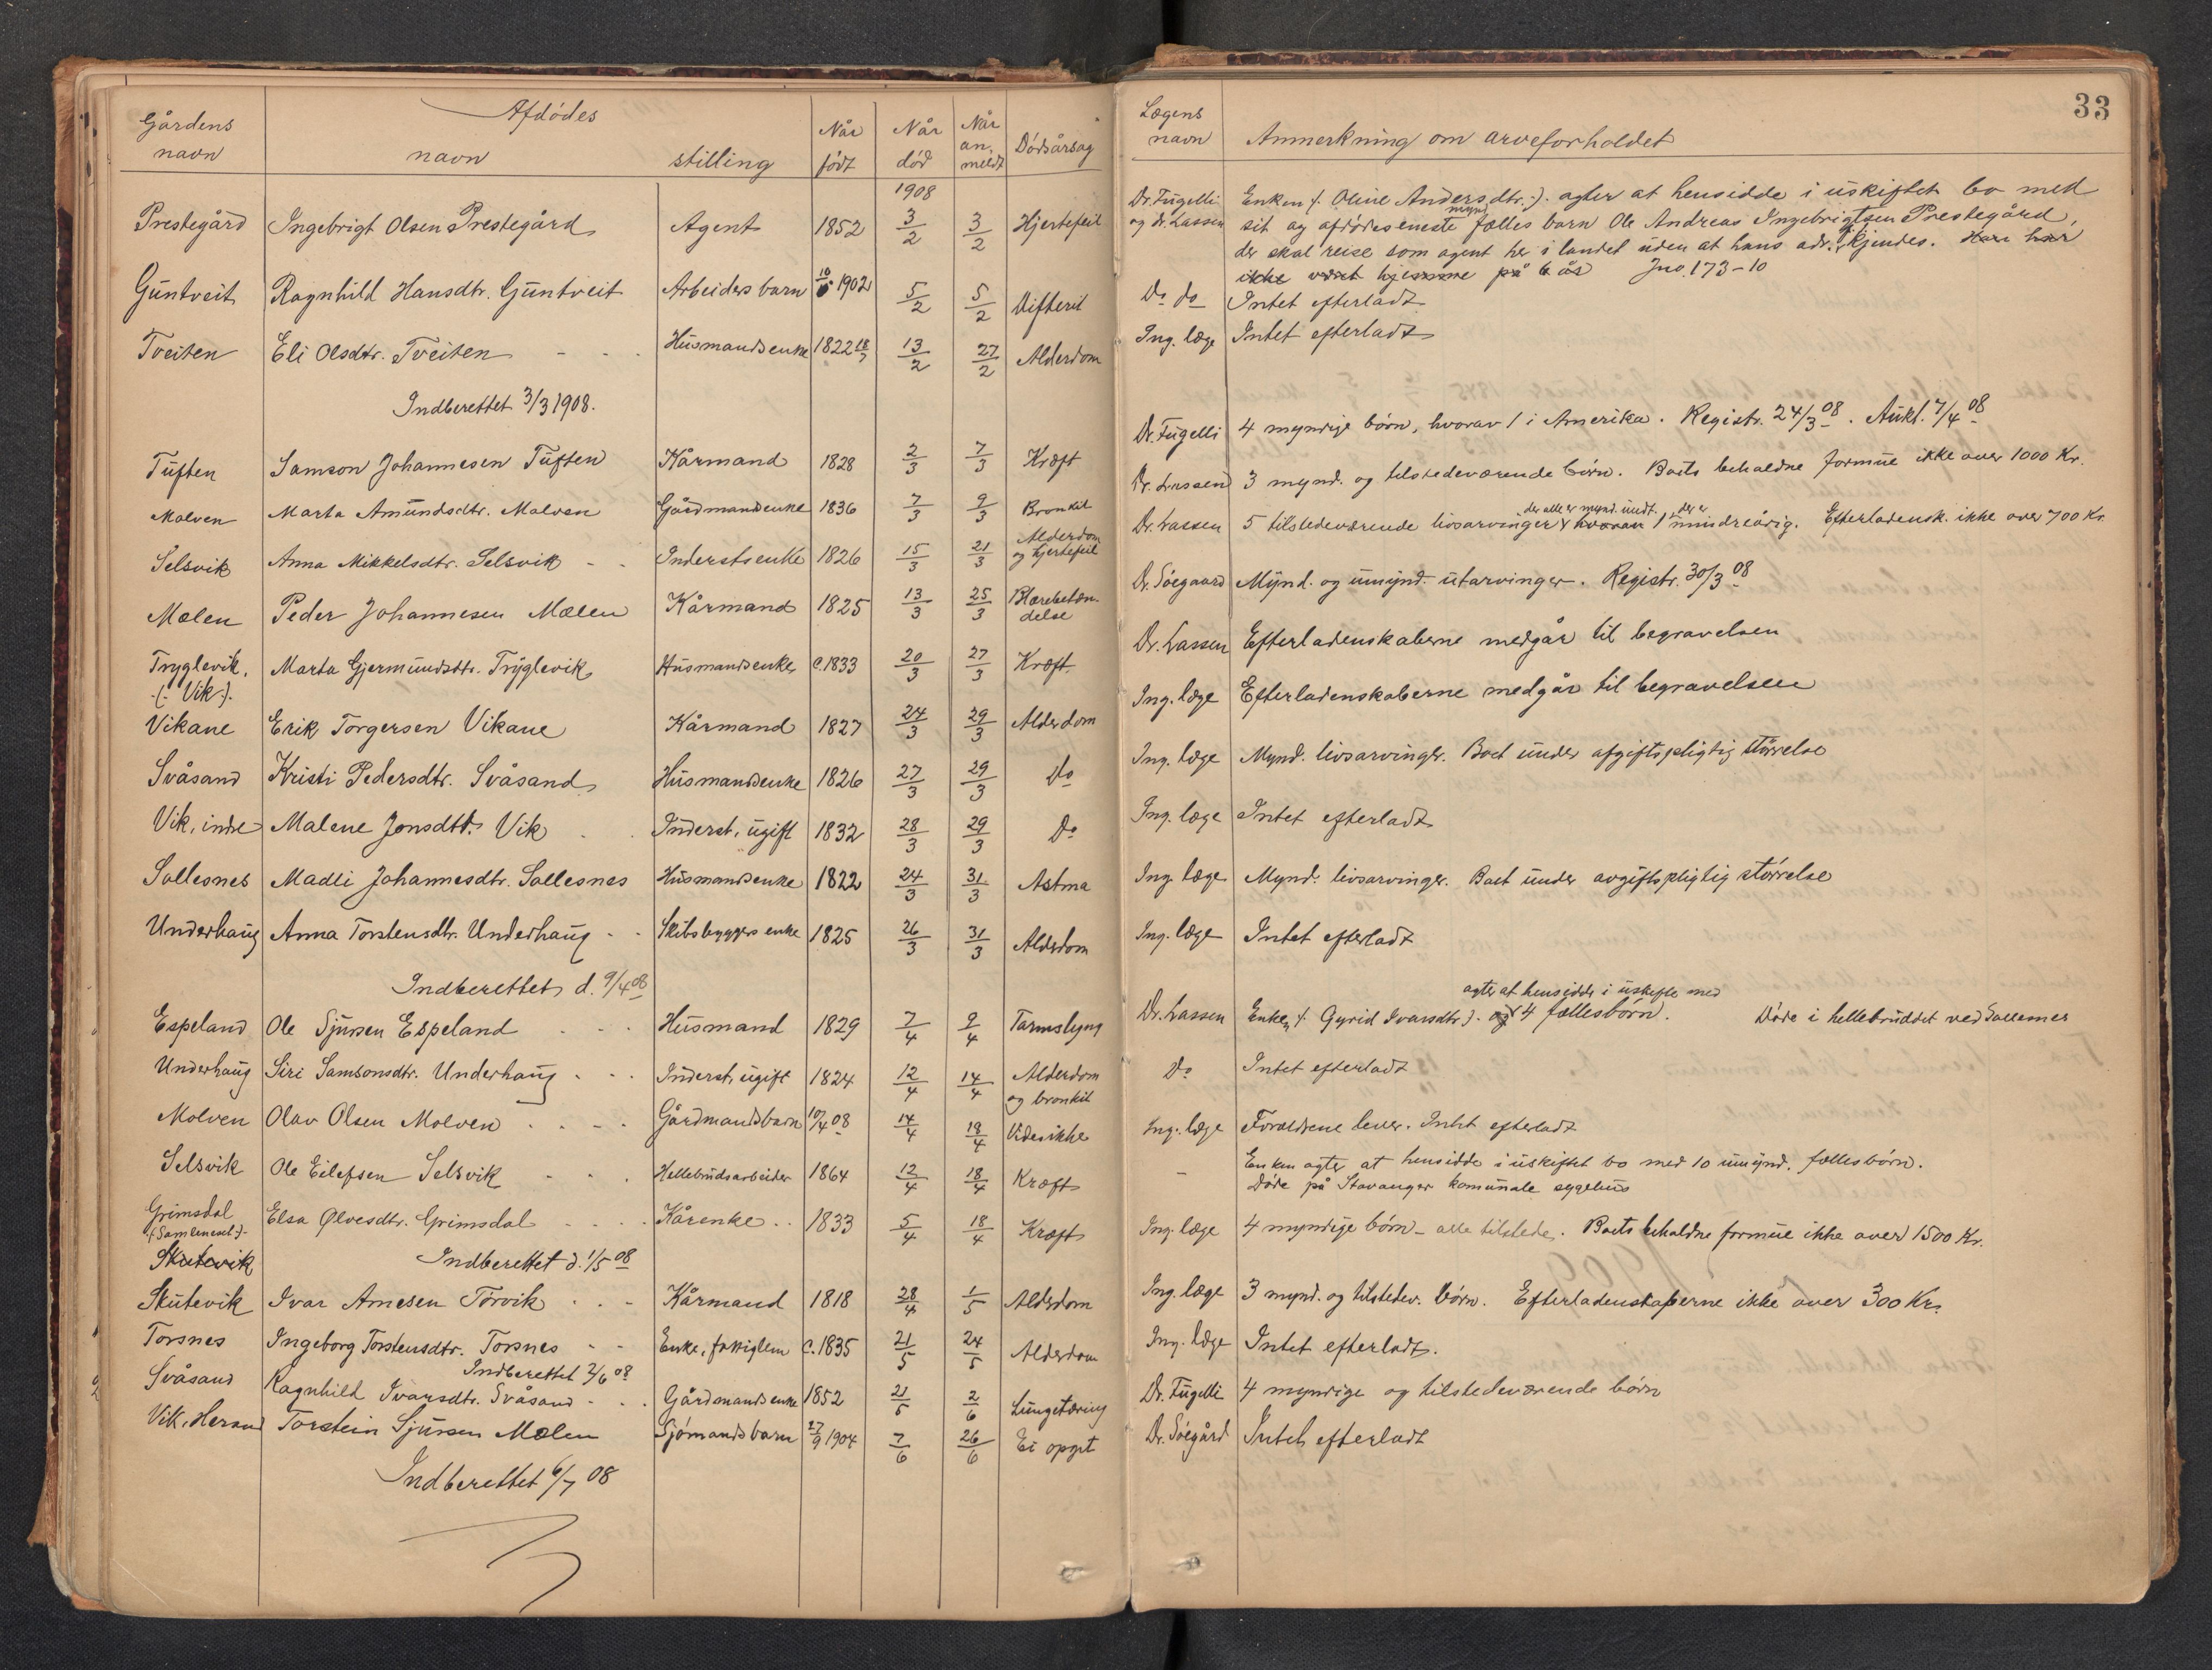 33
Gårdens navn | Afdødes navn | stilling | Når født | Når død | Når anmeldt | Dødsårsag | Lægens navn | Anmerkning om arveforholdet
1908
Prestegård | Ingebrigt Olsen Prestegård | Agent | 1852 | 3/2 | 3/2 | Hjertefeil | Dr. Fugelli og dr. Lassen | Enken /: Oline Andersdtr. :/ agter at hensidde i uskiftet bo med
sit og afdødes eneste mynd. fælles barn Ole Andreas Ingebrigtsen Prestegård,
der skal reise som agent her i landet uden at hans adr. kjendes. Han har
ikke været hjemme på 6 år Jno. 173-10
Guntveit | Ragnhild Hansdtr. Guntveit | Arbeiders barn | 1902 | 5/2 | 5/2 | Difterit | Do do | Intet efterladt
Tveiten | Eli Olsdtr. Tveiten | Husmandsenke | 1822 18/7 | 13/2 | 27/2 | Alderdom | Ing. læge | Intet efterladt
Indberettet 3/3 1908.
Tuften | Samson Johannesen Tuften | Kårmand | 1828 | 2/3 | 7/3 | Kræft | Dr. Fugelli | 4 myndige børn, hvorav 1 i Amerika. Registr. 24/3 08. Aukt. 7/4 08
Malven | Marta Amundsdtr. Malven | Gårdmandsenke | 1836 | 7/3 | 9/3 | Bronkit | Dr. Lassen | 3 mynd. og tilstedeværende børn. Boets beholdne formue ikke over 1000 Kr.
Selsvik | Anna Mikkelsdtr. Selsvik | Inderstsenke | 1826 | 15/3 | 21/3 | Alderdom og hjertefeil | Dr. Lassen | 5 tilstedeværende livsarvinger der alle er mynd. undt. hvorav 1 der er mindreårig. Efterladensk. ikke over 700 Kr.
Mælen | Peder Johannesen Mælen | Kårmand | 1825 | 13/3 | 25/3 | Blærebetændelse | Dr. Söegaard | Mynd. og umynd. utarvinger. Registr. 30/3 08
Tryglevik, (: Vik :) | Marta Gjermundsdtr. Tryglevik | Husmandsenke | c. 1833 | 20/3 | 27/3 | Kræft | Dr. Lassen | Efterladenskaberne medgår til begravelsen
Vikane | Erik Torgersen Vikane | Kårmand | 1827 | 24/3 | 29/3 | Alderdom | Ing. læge | Efterladenskaberne medgår til begravelsen
Svåsand | Kristi Pedersdtr. Svåsand | Husmandsenke | 1826 | 27/3 | 29/3 | Do | Ing. læge | Mynd. livsarvinger. Boet under afgiftspligtig størrelse
Vik, indre | Malene Jonsdtr. Vik | Inderst, ugift | 1832 | 28/3 | 29/3 | Do | Ing. læge | Intet efterladt
Sollesnes | Madli Johannesdtr. Sollesnes | Husmandsenke | 1822 | 24/3 | 31/3 | Astma | Ing. læge | Mynd. livsarvinger. Boet under avgiftspligtig størrelse
Underhaug | Anna Torstensdtr. Underhaug | Skibsbyggers enke | 1825 | 26/3 | 31/3 | Alderdom | Ing. læge | Intet efterladt
Indberettet d. 9/4 08
Espeland | Ole Sjursen Espeland | Husmand | 1829 | 7/4 | 9/4 | Tarmslyng | Dr. Lassen | Enken /: Gyrid Ivarsdtr :/ og agter at hensidde i uskifte med 4 fællesbørn. Døde i hellebruddet ved Sallesnes
Underhaug | Siri Samsonsdtr. Underhaug | Inderst, ugift | 1824 | 12/4 | 14/4 | Alderdom og bronkit | Do | Intet efterladt
Molven | Olav Olsen Molven | Gårdmandsbarn | 10/4 08 | 14/4 | 18/4 | Vides ikke | Ing. læge | Forældrene lever. Intet efterladt
Selsvik | Ole Eilefsen Selsvik | Hellebrudsarbeider | 1864 | 12/4 | 18/4 | Kræft | - | Enken agter at hensidde i uskiftet bo med 10 umynd. fællesbørn.
Døde på Stavanger komunale sygehus
Grimsdal | Elsa Ølvesdtr. Grimsdal | Kårenke | 1833 | 5/4 | 18/4 | Kræft | Ing. læge | 4 myndige børn - alle tilstede. Boets beholdne formue ikke over 1500 Kr.
Skutevik
Indberettet d. 1/5 08
Skutevik | Ivar Arnesen Torvik | Kårmand | 1818 | 28/4 | 1/5 | Alderdom | Ing. læge | 3 mynd. og tilstedev. børn. Efterladenskaberne ikke over 300 Kr.
Torsnes | Ingeborg Torstensdtr. Torsnes | Enke, fattiglem | c. 1835 | 21/5 | 24/5 | Alderdom | Ing. læge | Intet efterladt.
Indberettet 2/6 08
Svåsand | Ragnhild Ivarsdtr. Svåsand | Gårdmandsenke | 1852 | 21/5 | 2/6 | Lungetæring | Dr. Fugelli | 4 myndige og tilstedeværende børn
Vik, Herand | Torstein Sjursen Mælen | Sjømandsbarn | 27/9 1904 | 7/6 | 26/6 | Ei opgit | Dr. Söegård | Intet efterladt
Indberettet 6/7 08